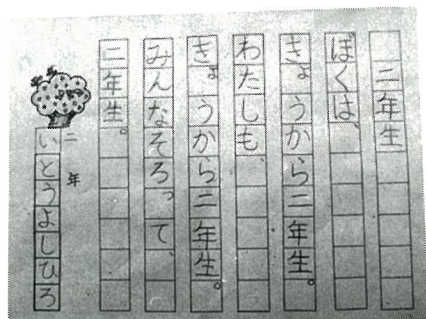 二年生
ぼくは、
きょうから二年生。
わたしも、
きょうから二年生。
みんなそろって、
二年生。
二年
いとうよしひろ